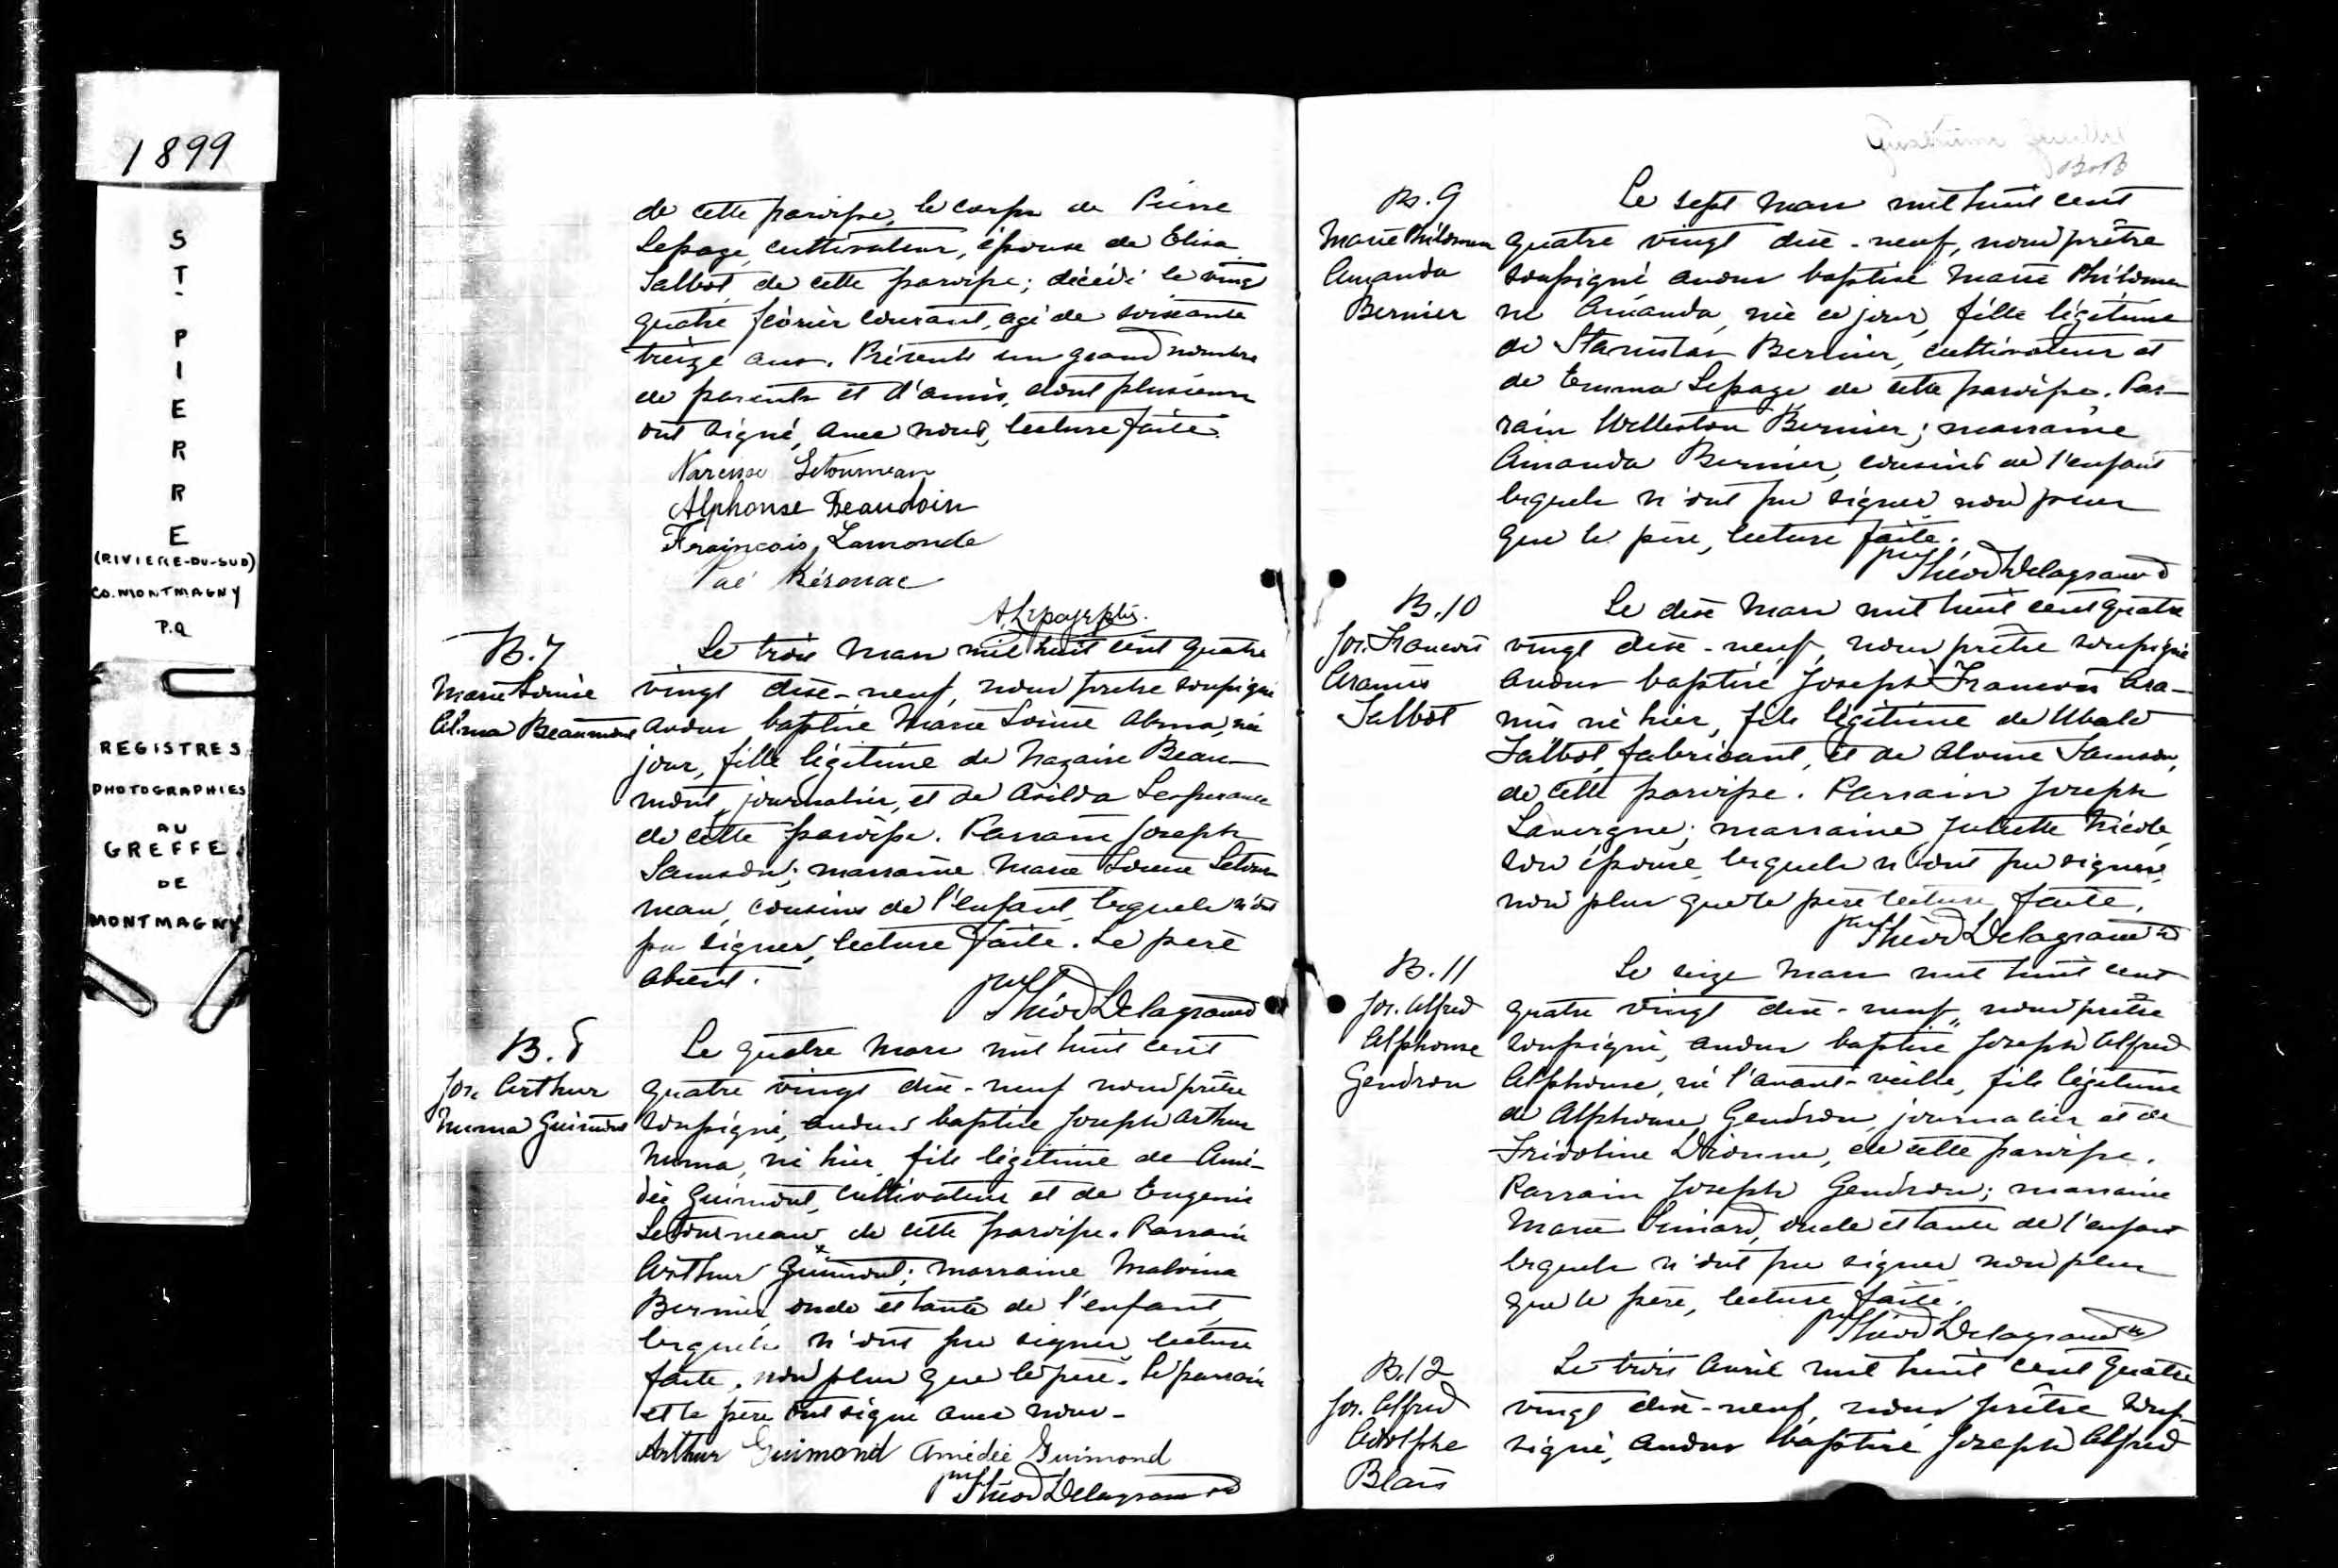 1899
ST-PIERRE
(RIVIERE-DU-SUD)
CO. MONTMAGNY
P.Q
REGISTRES
PHOTOGRAPHIES
AU
GREFFE
DE
MONTMAGNY
de cette paroisse, le corps de Pierre
Lepage, cultivateur, épouse de Elisa
Talbot de cette paroisse; décédé le vingt
quatre février courant, agé de soixante
treize ans. Présents un grand nombre
de parents et d'amis, dont plusieurs
ont signé, avec nous, lecture faite.
Narcisse Letourneau
Alphonse Beaudoin
François Lamonde
A. Lepage ptre.
B. 7
Marie Louise
Alma Beaumont
Le trois Mars mil huit cent quatre
vingt dix-neuf, nous prêtre soussigné
avons baptisé Marie Louise Alma, née
jour, fille légitime de Nazaire Beau-
mont, journalier, et de Asilda Lesperance
de cette paroisse. Parrain Joseph
Samson; marraine Marie Louise Letour
neau, cousins de l'enfant lesquels n'ont
pu signer, lecture faite. Le père
absent.
Théod Delagrave
B. 8
Jos. Arthur
Numa Guimont
Le quatre Mars mil huit cent
quatre vingt dix-neuf nous prêtre
soussigné, avons baptisé Joseph Arthur
Numa, né hier, fils légitime de Amé-
dée Guimont, cultivateur et de Eugénie
Letourneau de cette paroisse. Parrain
Arthur Guimont; marraine Malvina
Bernier, oncle et tante de l'enfant,
lesquels n'ont pu signer, lecture
faite, non plus que le père. Le parrain
et le père ont signé avec nous-
Arthur Guimond Amédée Guimond
Théod Delagrave
B. 9
Marie Philomen
Amanda
Bernier
Le sept Mars mil huit cent
quatre vingt dix-neuf, nous prêtre
soussigné avons baptisé Marie Philome
ne Amanda, née ce jour, fille légitime
de Stanislas Bernier, cultivateur et
de Emma Lepage de cette paroisse. Par-
rain Welleston Bernier; marraine
Amanda Bernier, cousins de l'enfant
lesquels n'ont pu signer non plus
que le père, lecture faite.
Théod Delagrave
B. 10
Jos. Francois
Aramis
Talbot
Le dix Mars mil huit cent quatre
vingt dix-neuf, nous prêtre soussigné
avons baptisé Joseph Francois Ara-
mis né hier, fils légitime de Ubald
Talbot, fabricant, et de Alvine Samson,
de cette paroisse. Parrain Joseph
Lavergne; marraine Juliette Nicole,
son épouse lesquels n'ont pu signer,
non plus que le père lecture faite.
Théod Delagrave
B. 11
Jos. Alfred
Alphonse
Gendron
Le seize Mars mil huit cent
quatre vingt dix-neuf, nous prêtre
soussigné, avons baptisé Joseph Alfred
Alphonse, né l'avant-veille, fils légitime
de Alphonse Gendron, journalier et de
Fridoline Dionne, de cette paroisse.
Parrain Joseph Gendron; marraine
Marie Simard, oncle et tante de l'enfant
lesquels n'ont pu signer non plus
que le père, lecture faite.
Théod Delagrave
B. 12
Jos. Alfred
Adolphe
Blais
Le trois Avril mil huit cent quatre
vingt dix-neuf, nous prêtre sous-
signé, avons baptisé Joseph Alfred